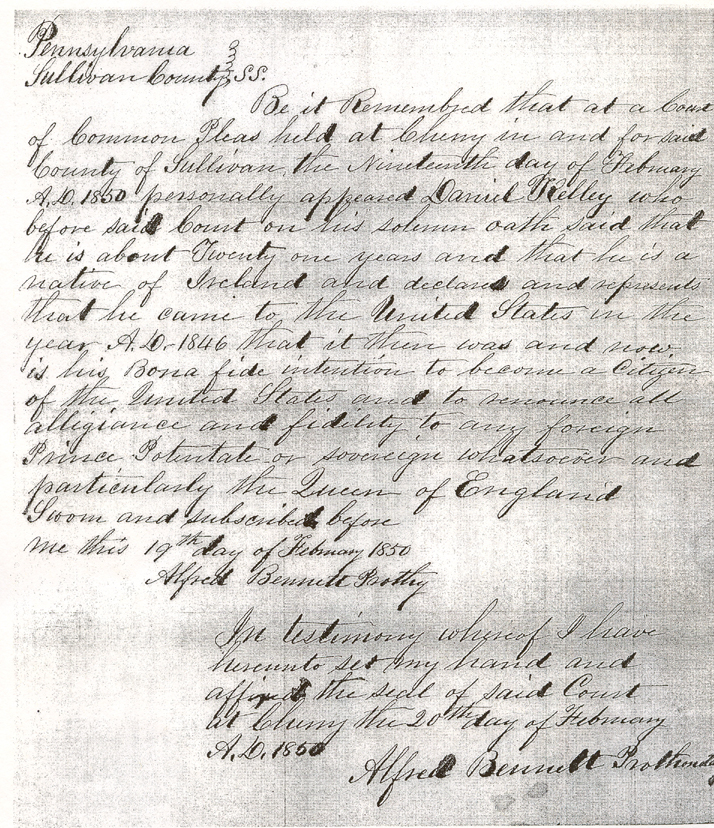 Pennsylvania
Sullivan County SS.
Be it Remembred that at a Court
of Common Pleas held at Cherry in and for said
County of Sullivan, the Nineteenth day of February
A.D. 1850 personally appeared Daniel Kelley who
before said Court on his solemn oath said that
he is about Twenty one years and that he is a
native of Ireland and declares and represents
that he came to the United States in the
year A.D. 1846 that it then was and now
is his Bona fide intention to become a Citizen
of the United States and to renounce all
allegiance and fidility to any foreign
Prince Potentate or sovereign whatsoever and
particularly the Queen of England
Sworn and subscribed before
me this 19th day of February 1850
Alfred Bennett Prothy
In testimony whereof I have
hereunto set my hand and
affixed the seal of said Court
at Cherry the 20th day of February
A.D. 1850
Alfred Bennett